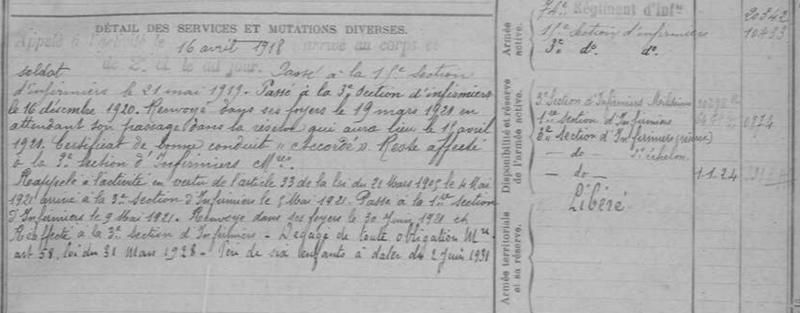 DÉTAIL DES SERVICES ET MUTATIONS DIVERSES.
Appelé à l'activité le 16 avril 1918 arrivé au corps et
soldat de 2e cl. le dit jour. Passé à la 15e Section
d'infirmiers le 21 mai 1919. Passé à la 3e Section d'infirmiers
le 16 décembre 1920. Renvoyé dans ses foyers le 19 mars 1921 en
attendant son passage dans la réserve qui aura lieu le 15 avril
1921. Certificat de bonne conduit « accordé ». Reste affecté
à la 3e Section d'Infirmiers Mres
Rappelé à l'activité en vertu de l'article 33 de la loi du 21 Mars 1905 le 4 Mai
1921 arrivé à la 3e section d'Infirmiers le 5 Mai 1921. Passé à la 1ère section
d'Infirmiers le 9 Mai 1921. Renvoyé dans ses foyers le 30 Juin 1921 et
Réaffecté à la 3e section d'Infirmiers - Dégagé de toute obligation Mre
art 58, loi du 31 Mars 1928 - Père de six enfants à dater du 2 Juin 1931
Armée active.
74e Régiment d'Infie
15e Section d'infirmiers
3e do do
Disponibilité et réserve de l'armée active.
3e Section d'Infirmiers Militaires
1ère Section d'Infirmiers
3e Section d'Infirmiers (réserve)
- do - 2e échelon
- do - 1.1.24
Armée territoriale et sa réserve.
Libéré
20342
10433
6874